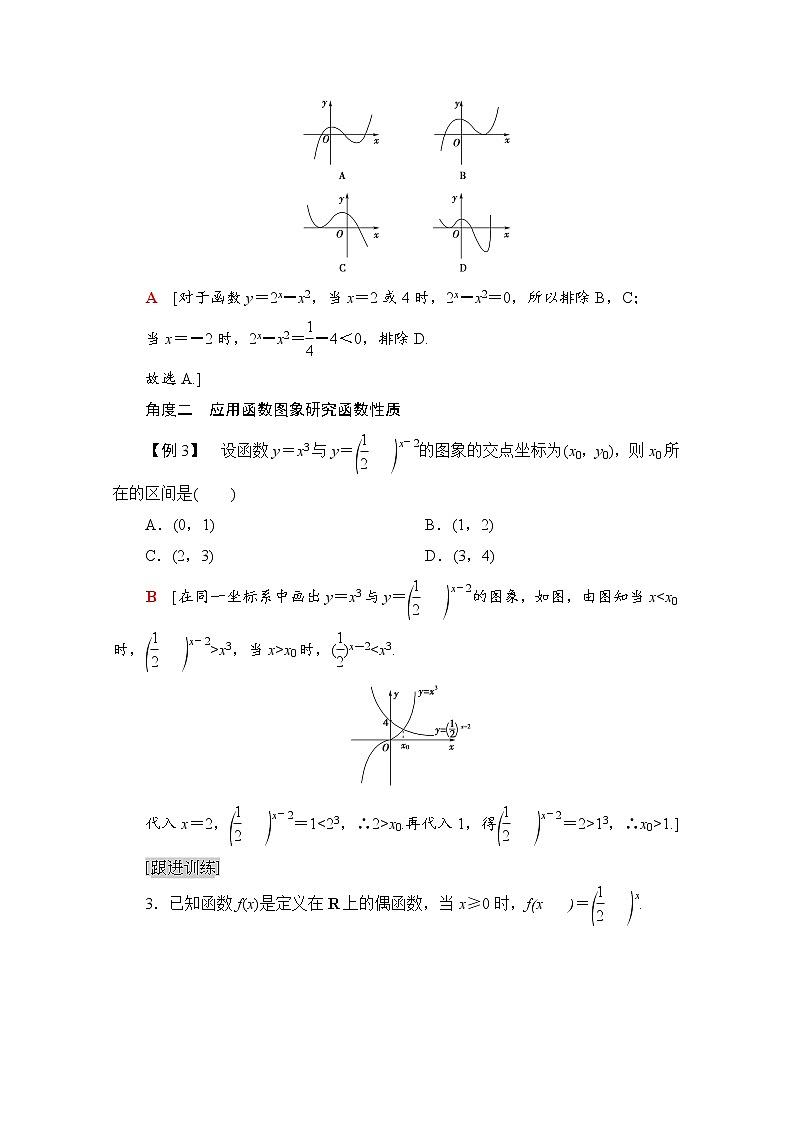 y
O
x
A
y
O
x
B
y
O
x
C
y
O
x
D
A [对于函数 y=2ˣ-x²，当 x=2 或 4 时，2ˣ-x²=0，所以排除 B，C；
当 x=-2 时，2ˣ-x²=1/4-4<0，排除 D.
故选 A.]
角度二 应用函数图象研究函数性质
【例 3】 设函数 y=x³与 y=(1/2)ˣ⁻²的图象的交点坐标为(x₀，y₀)，则 x₀所
在的区间是( )
A．(0，1) B．(1，2)
C．(2，3) D．(3，4)
B [在同一坐标系中画出 y=x³与 y=(1/2)ˣ⁻²的图象，如图，由图知当 x<x₀
时，(1/2)ˣ⁻²>x³，当 x>x₀时，(1/2)ˣ⁻²<x³.
y
y=x³
4
y=(1/2)ˣ⁻²
O
x₀
x
代入 x=2，(1/2)ˣ⁻²=1<2³，∴2>x₀.再代入 1，得(1/2)ˣ⁻²=2>1³，∴x₀>1.]
[跟进训练]
3．已知函数 f(x)是定义在 R 上的偶函数，当 x≥0 时，f(x )=(1/2)ˣ.